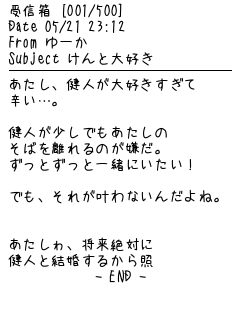 受信箱 [001/500]
Date 05/21 23:12
From ゆーか
Subject けんと大好き
あたし、健人が大好きすぎて
辛い…。
健人が少しでもあたしの
そばを離れるのが嫌だ。
ずっとずっと一緒にいたい！
でも、それが叶わないんだよね。
あたしゎ、将来絶対に
健人と結婚するから照
- END -